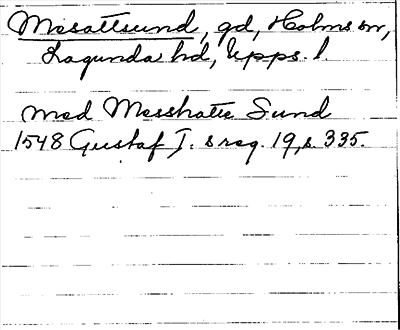 Mesattsund, gd, Holms sn,
Lagunda hd, Upps. l.
med Messhatte Sund
1548 Gustaf I:s reg. 19, s. 335.